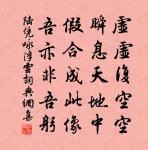 虛虛復空空
瞬息天地中
假合成此像
吾亦非吾躬
陸憑咏浮雲詞典網喜